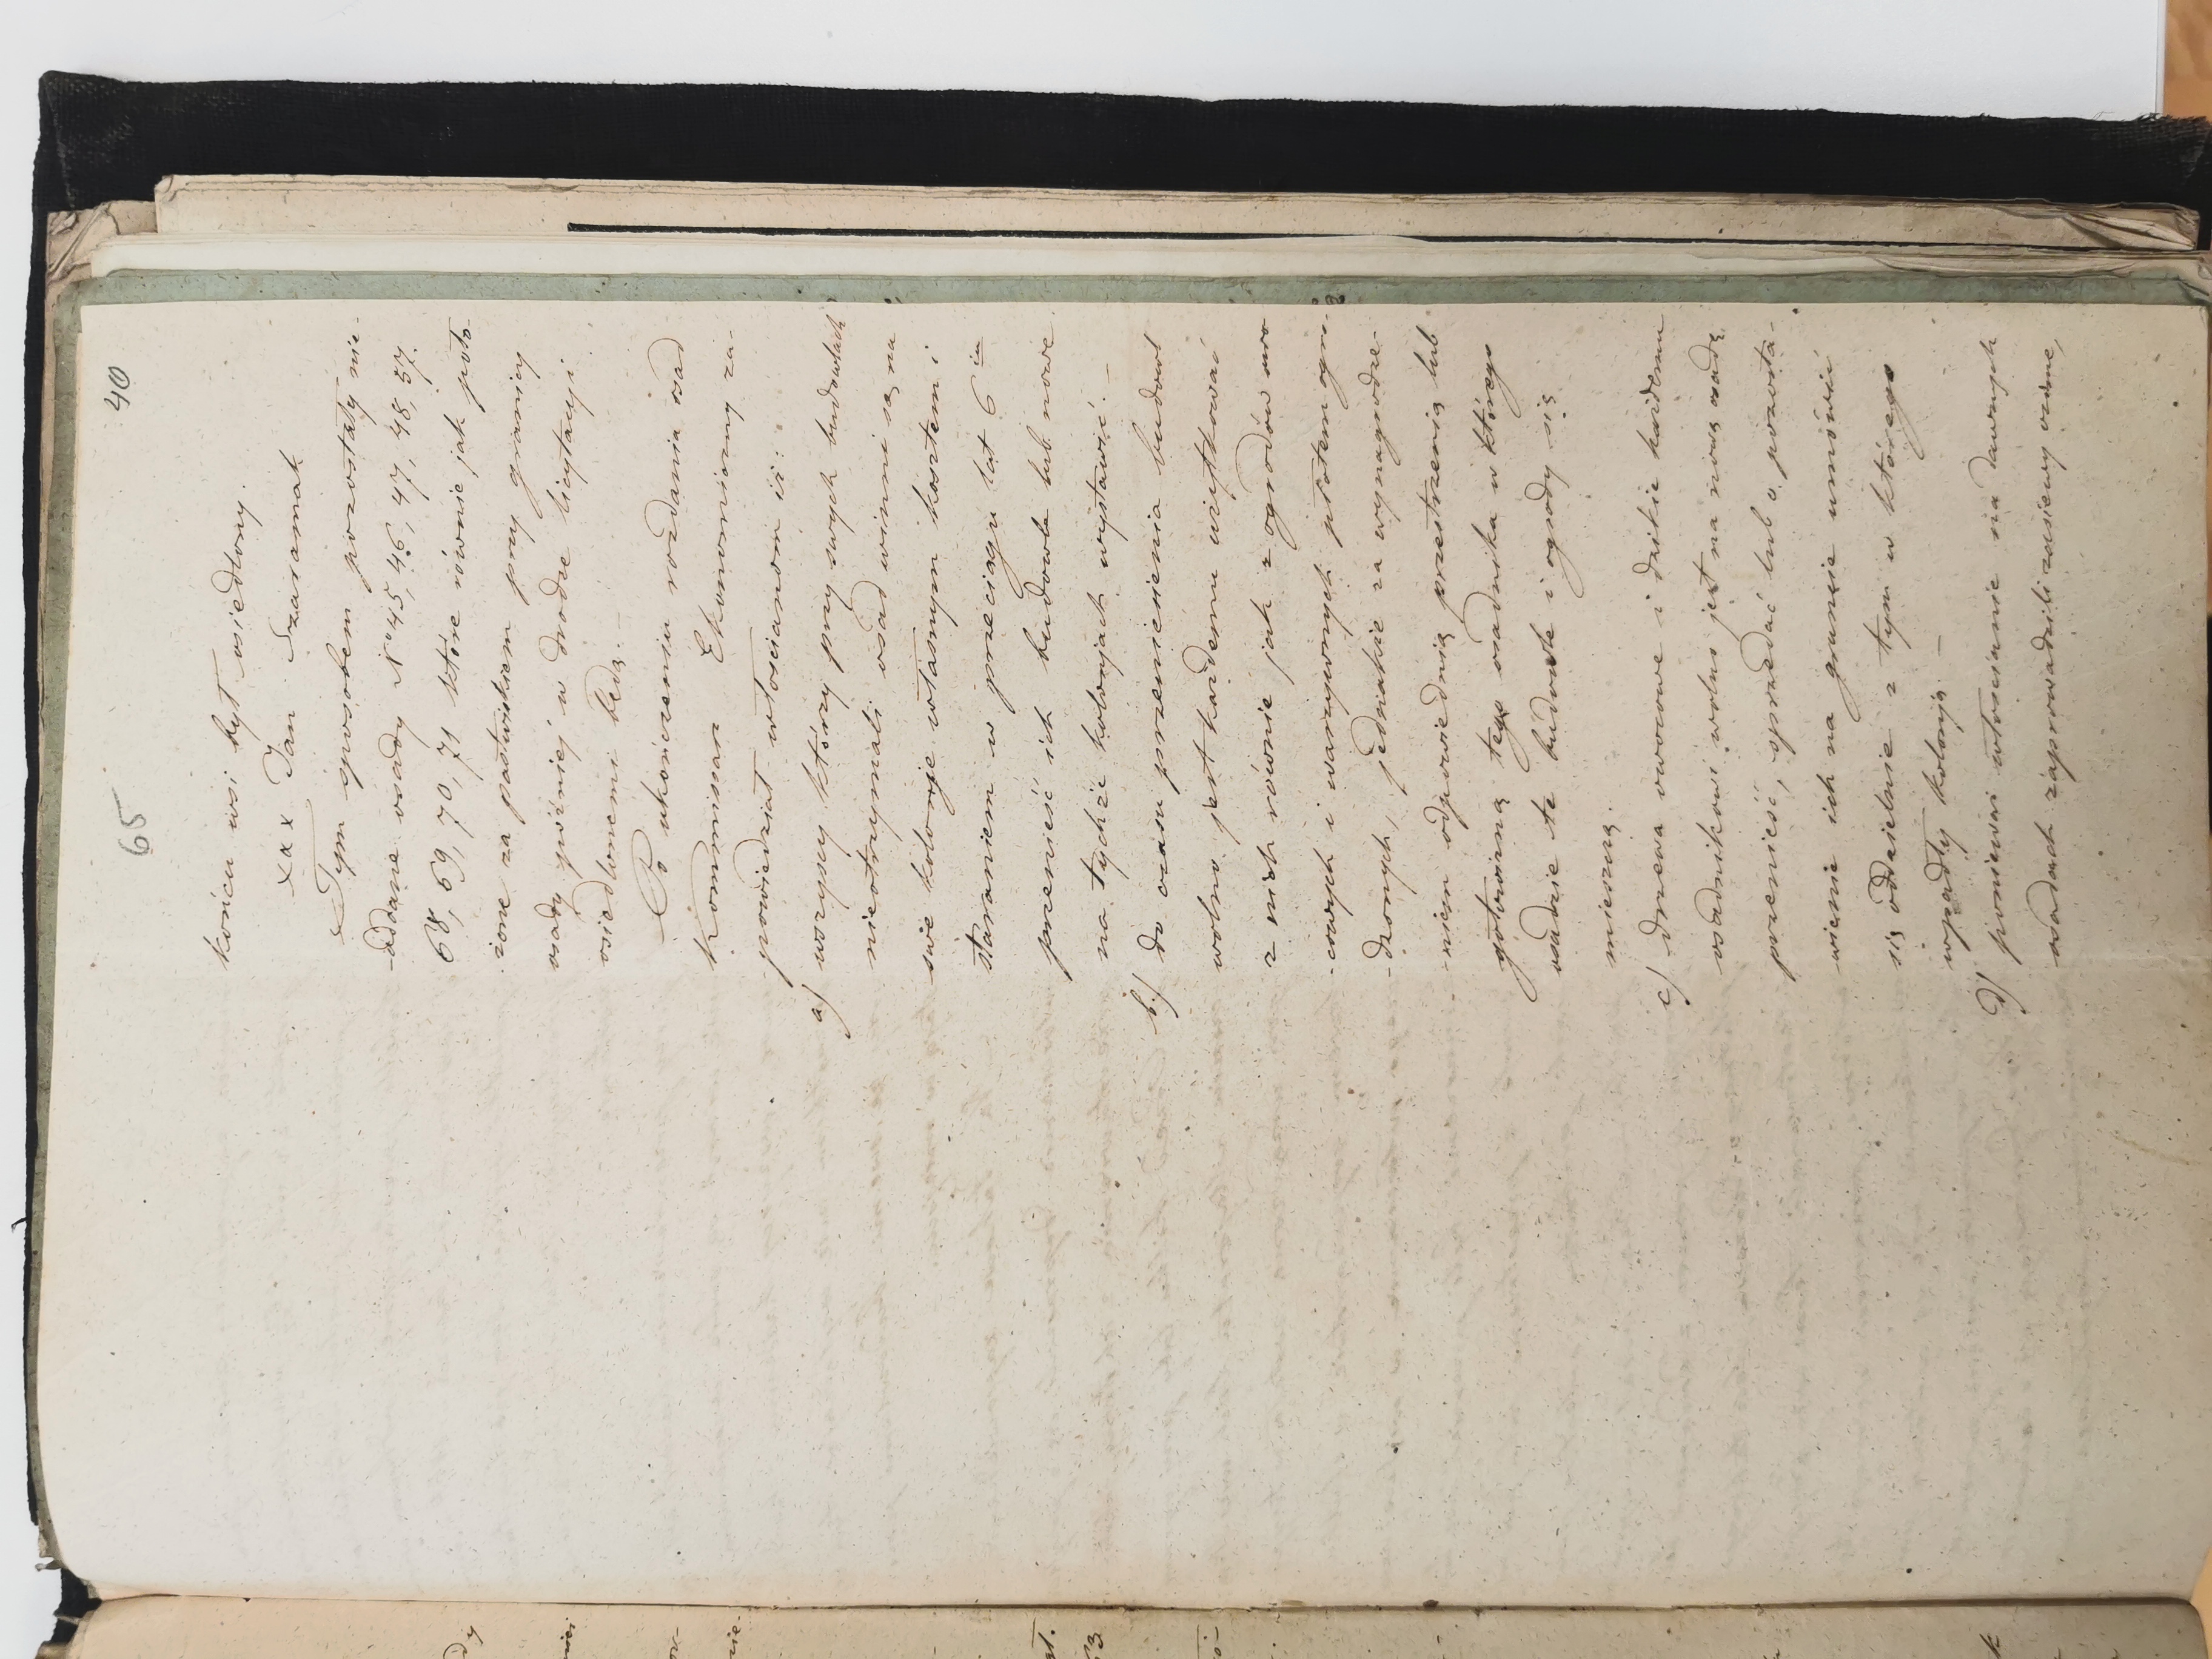 65
40
końcu wsi był osiedlony.
xxx Jan Szaramak
Tym sposobem pozostały nie-
-oddane osady No 45, 46, 47, 48, 57.
68, 69, 70, 71 które równie jak poło-
żone za pastwiskiem przy granicy
osady później w drodze licytacyi
osiedlonemi będą. —
Po ukończeniu rozdania osad
Kommissarz Ekonomiczny za-
powiedział włościanom iż:
a/ wszyscy którzy przy swych budowlach
nieotrzymali osad winni są na
swe kolonje własnym kosztem i
staraniem w przeciągu lat 6 iu
przenieść ich budowle lub nowe
na tychże kolonjach wystawić. —
b/ do czasu przeniesienia budowl
wolno jest każdemu użytkować
z nich równie jak z ogrodów owo
-cowych i warzywnych płotem ogro-
-dzonych, jednakże za wynagrodze-
-niem odpowiednią przestrzenią lub
gotowizną tego osadnika w którego
osadzie te budowle i ogrody się
mieszczą.
c/ drzewa owocowe i dzikie każdemu
osadnikowi wolno jest na nową osadę
przenieść, sprzedać lub o pozosta-
wienie ich na gruncie umówić
się oddzielnie z tym w którego
wpadły kolonją. —
d/ ponieważ włościanie na dawnych
osadach zaprowadzili zasiewy ozime,